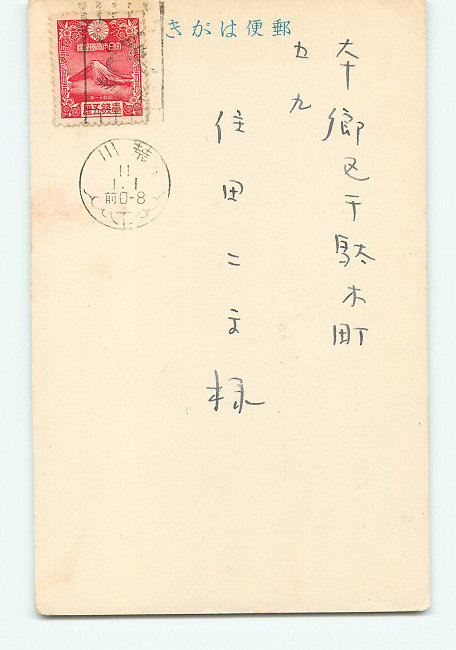 郵便はがき
大日本帝國郵便
壹錢五厘
荒川
11
1.1
前0-8
本郷区千駄木町
五九
住田二三様